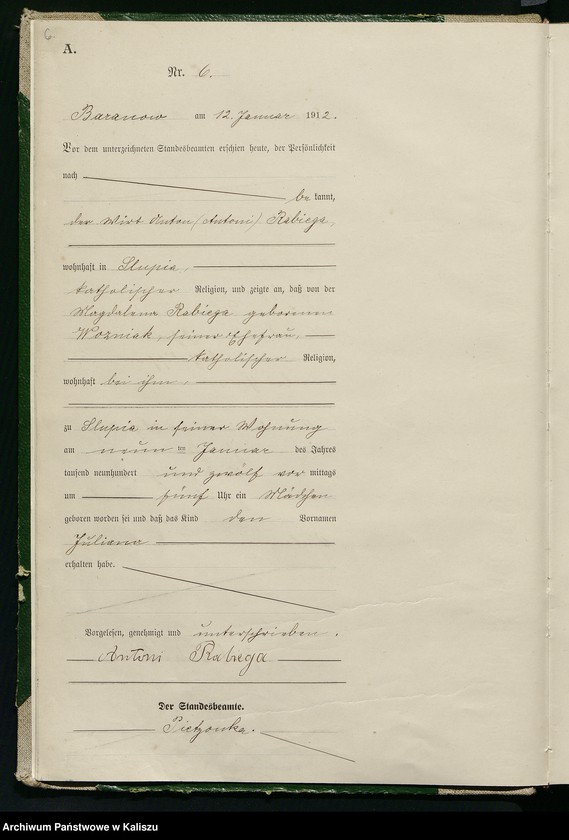 6
A.
Nr. 6.
Baranow am 12. Januar 1912.
Vor dem unterzeichneten Standesbeamten erschien heute, der Persönlichkeit
nach
be kannt,
der Wirt Anton (Antoni) Rabiega,
wohnhaft in Slupia,
katholischer Religion, und zeigte an, daß von der
Magdalena Rabiega geborenen
Wozniak, seiner Ehefrau,
katholischer Religion,
wohnhaft bei ihm,
zu Slupia in seiner Wohnung
am neun ten Januar des Jahres
tausend neunhundert und zwölf vor mittags
um fünf Uhr ein Mädchen
geboren worden sei und daß das Kind den Vornamen
Juliana
erhalten habe.
Vorgelesen, genehmigt und unterschrieben.
Antoni Rabiega
Der Standesbeamte.
Pietzonka.
Archiwum Państwowe w Kaliszu